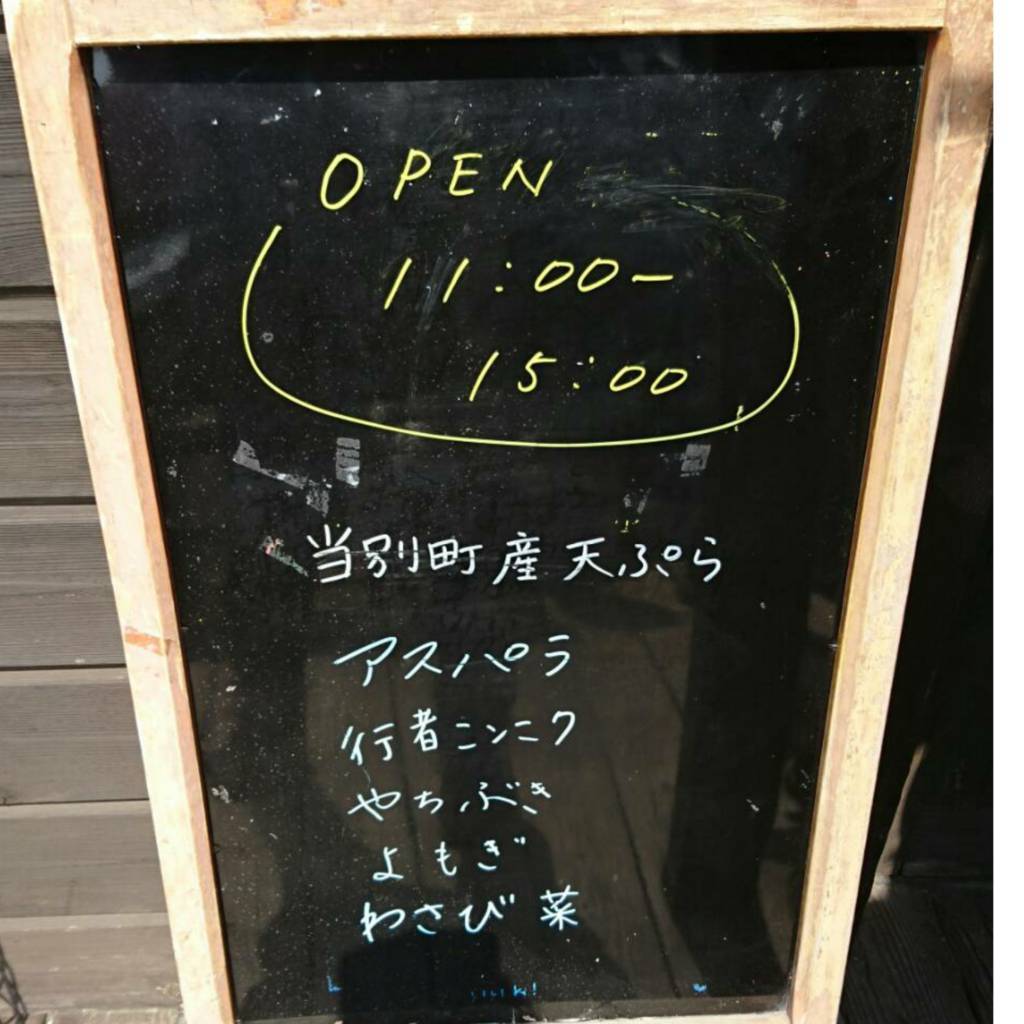 OPEN
11:00-
15:00
当別町産天ぷら
アスパラ
行者ニンニク
やちぶき
よもぎ
わさび菜